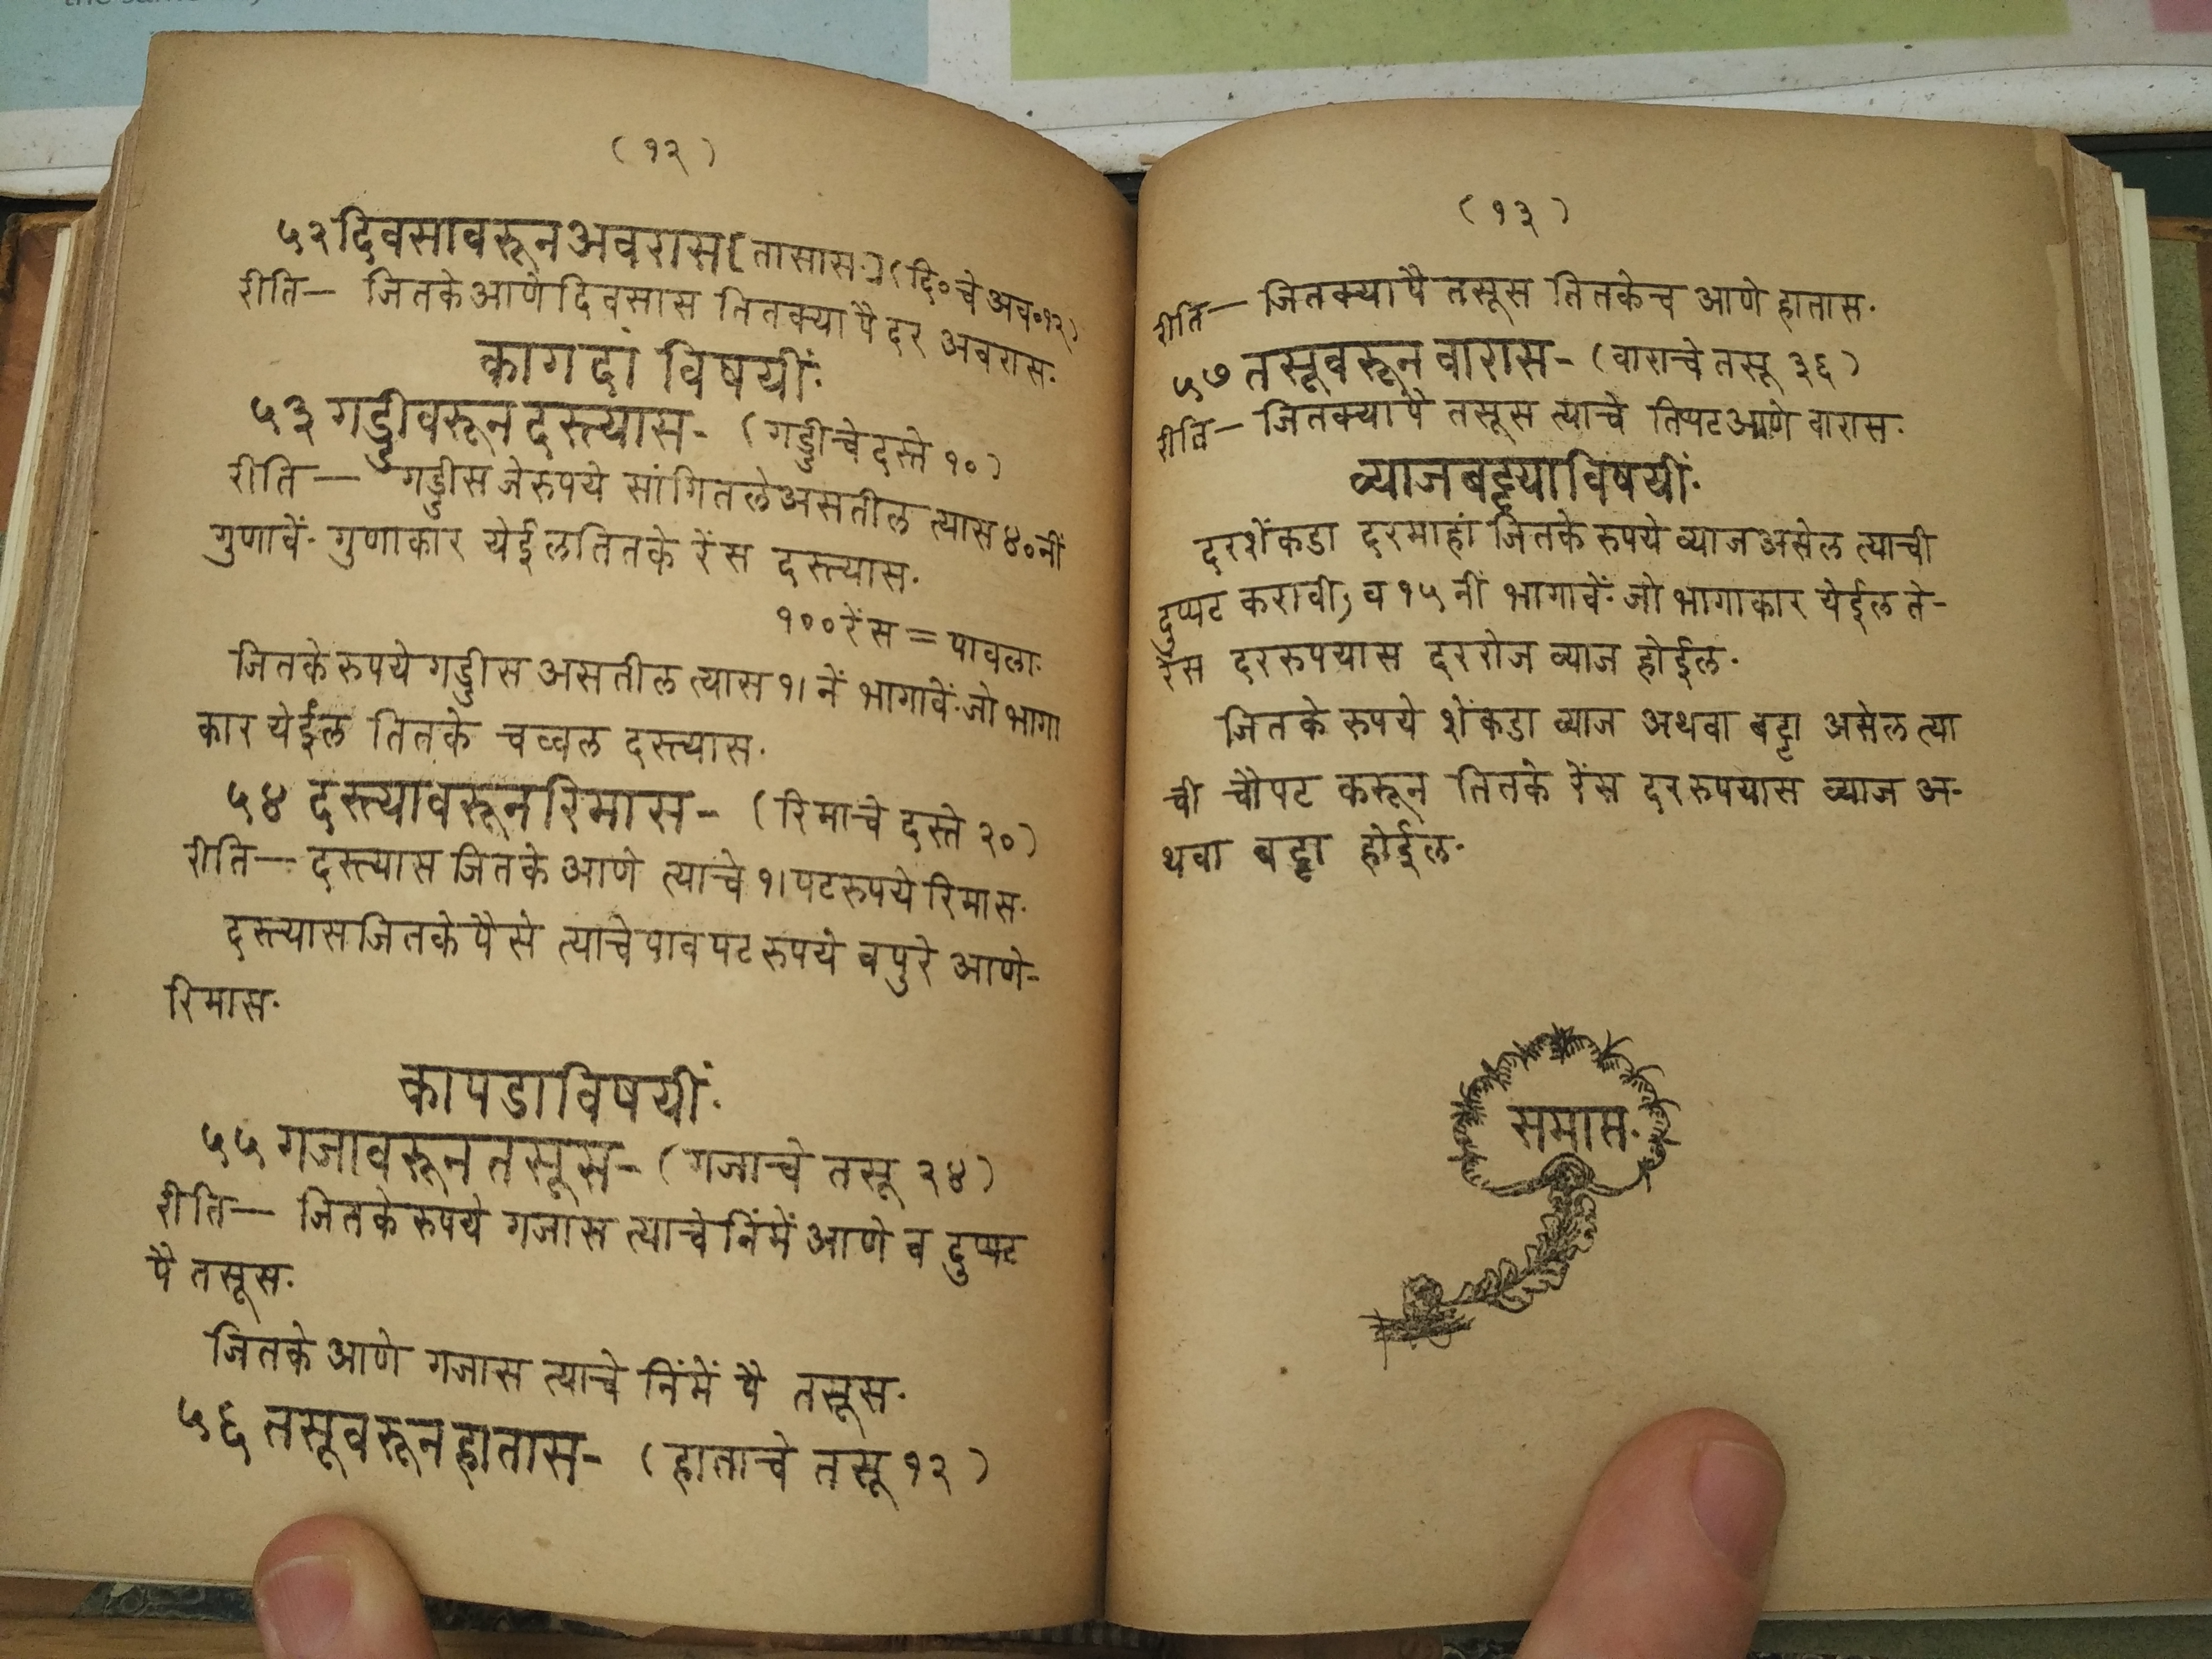 ( १२ )
५२ दिवसावरून अवरास [ तासास.] ( दि० चे अव० १२ )
रीति— जितके आणे दिवसास तितक्या पै दर अवरास.
कागदां विषयीं.
५३ गड्डीवरून दस्त्यास- ( गड्डीचे दस्ते १० )
रीति— गड्डीस जे रुपये सांगितले असतील त्यास ४० नीं
गुणावें. गुणाकार येईल तितके रेंस दस्त्यास.
१०० रेंस = पावला.
जितके रुपये गड्डीस असतील त्यास १। नें भागावें. जो भागा
कार येईल तितके चव्वल दस्त्यास.
५४ दस्त्यावरून रिमास- ( रिमाचे दस्ते २० )
रीति— दस्त्यास जितके आणे त्याचे १। पट रुपये रिमास.
दस्त्यास जितके पैसे त्याचे पावपट रुपये व पुरे आणे-
रिमास.
कापडाविषयीं.
५५ गजावरून तसूस- ( गजाचे तसू २४ )
रीति— जितके रुपये गजास त्याचे निंमें आणे व दुप्पट
पै तसूस.
जितके आणे गजास त्याचे निंमें पै तसूस.
५६ तसूवरून हातास- ( हाताचे तसू १२ )
( १३ )
रीति— जितक्या पै तसूस तितकेच आणे हातास.
५७ तसूवरून वारास- ( वाराचे तसू ३६ )
रीति— जितक्या पै तसूस त्याचे तिपट आणे वारास.
व्याजबट्ट्याविषयीं.
दरशेंकडा दरमाहां जितके रुपये व्याज असेल त्याची
दुप्पट करावी, व १५ नीं भागावें. जो भागाकार येईल ते-
रेंस दर रुपयास दररोज व्याज होईल.
जितके रुपये शेंकडा व्याज अथवा बट्टा असेल त्या
ची चौपट करून तितके रेंस दर रुपयास व्याज अ-
थवा बट्टा होईल.
समाप्त.